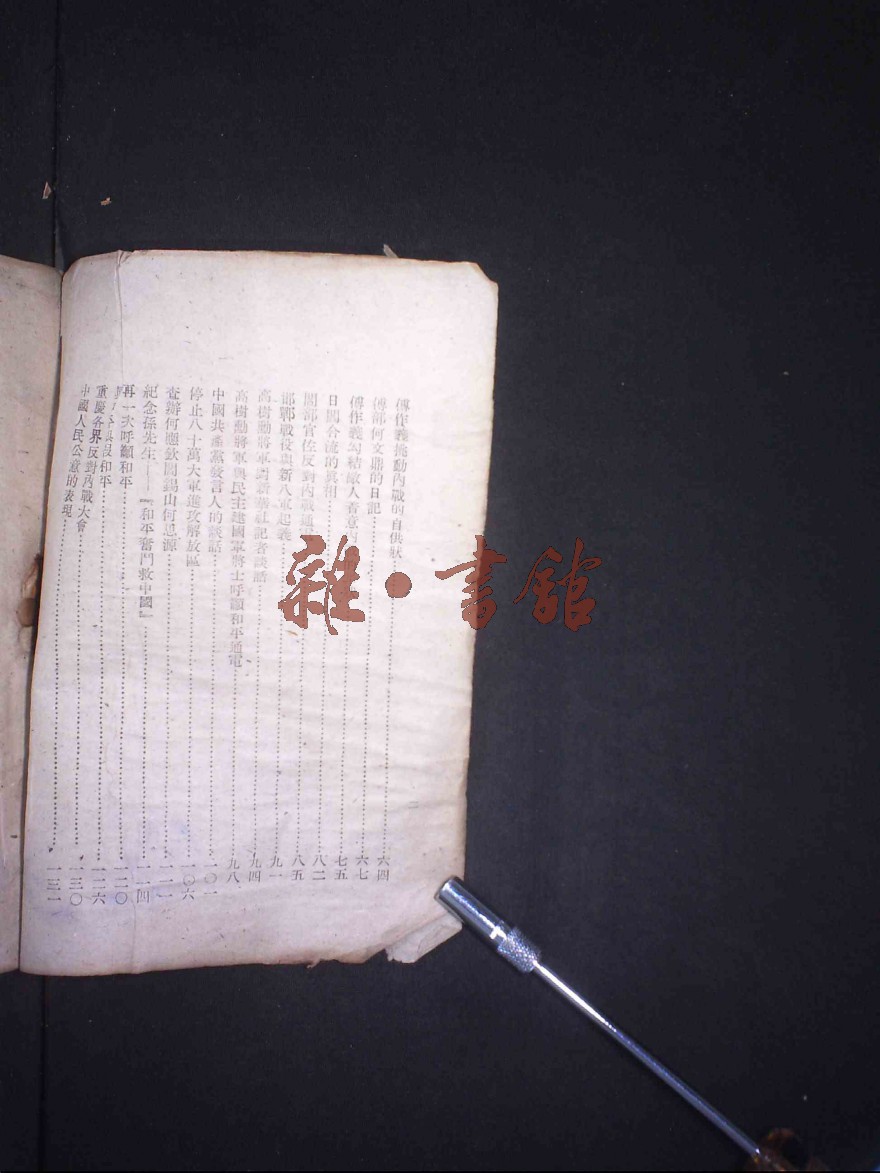 傅作義挑動內戰的自供狀……六四
傅部何文鼎的日記……六七
傅作義勾結敵人蓄意內……七五
日閻合流的真相……八二
閻部官佐反對內戰通……八五
邯鄲戰役與新八軍起義……九一
高樹勳將軍對新華社記者談話……九四
高樹勳將軍與民主建國軍將士呼籲和平通電……九八
中國共產黨發言人的談話……一〇一
停止八十萬大軍進攻解放區……一〇六
查辦何應欽閻錫山何思源……一一一
紀念孫先生——『和平奮鬥救中國』……一一四
再一次呼籲和平……一二〇
和平……一二六
重慶各界反對內戰大會……一三〇
中國人民公意的表現……一三一
雜·書館